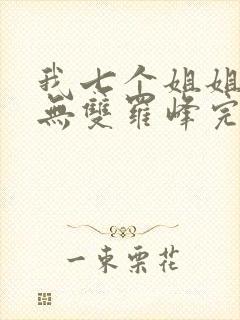 我七个姐姐
無雙羅峰完
一束栗花